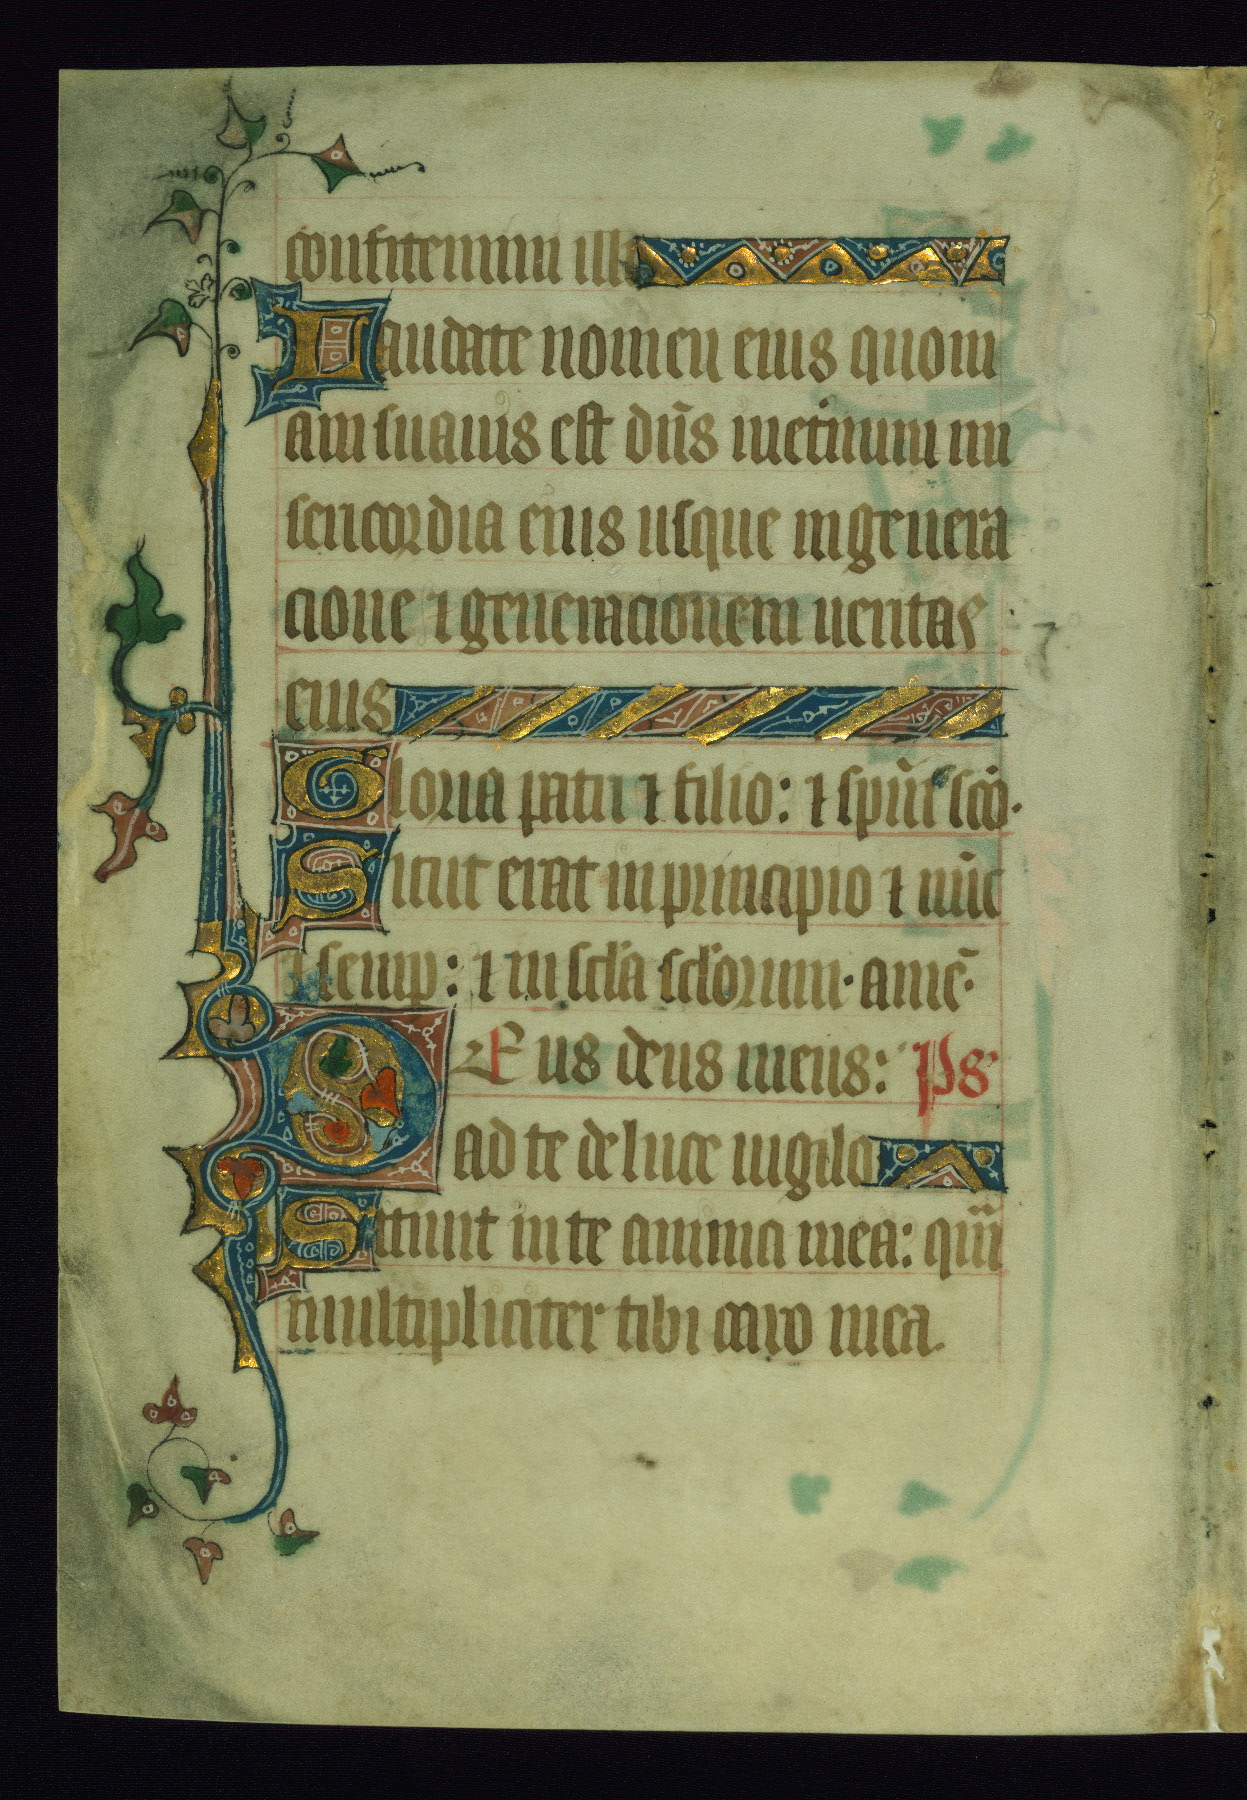 confitemini illi
Laudate nomen eius quoni
am suauis est dn̄s inet̾num mi
sericordia eius usque in genera
cione ⁊ generacionem ueritas
eius
Gloria patri ⁊ filio: ⁊ sp̄ui sc̄o.
Sicut erat in principio ⁊ nūc
⁊ semp: ⁊ in scl̄a scl̄orum· amē·
DEus deus meus: Ps̾
ad te de luce uigilo
Sitiuit in te anima mea: qm̄
multipliciter tibi caro mea.